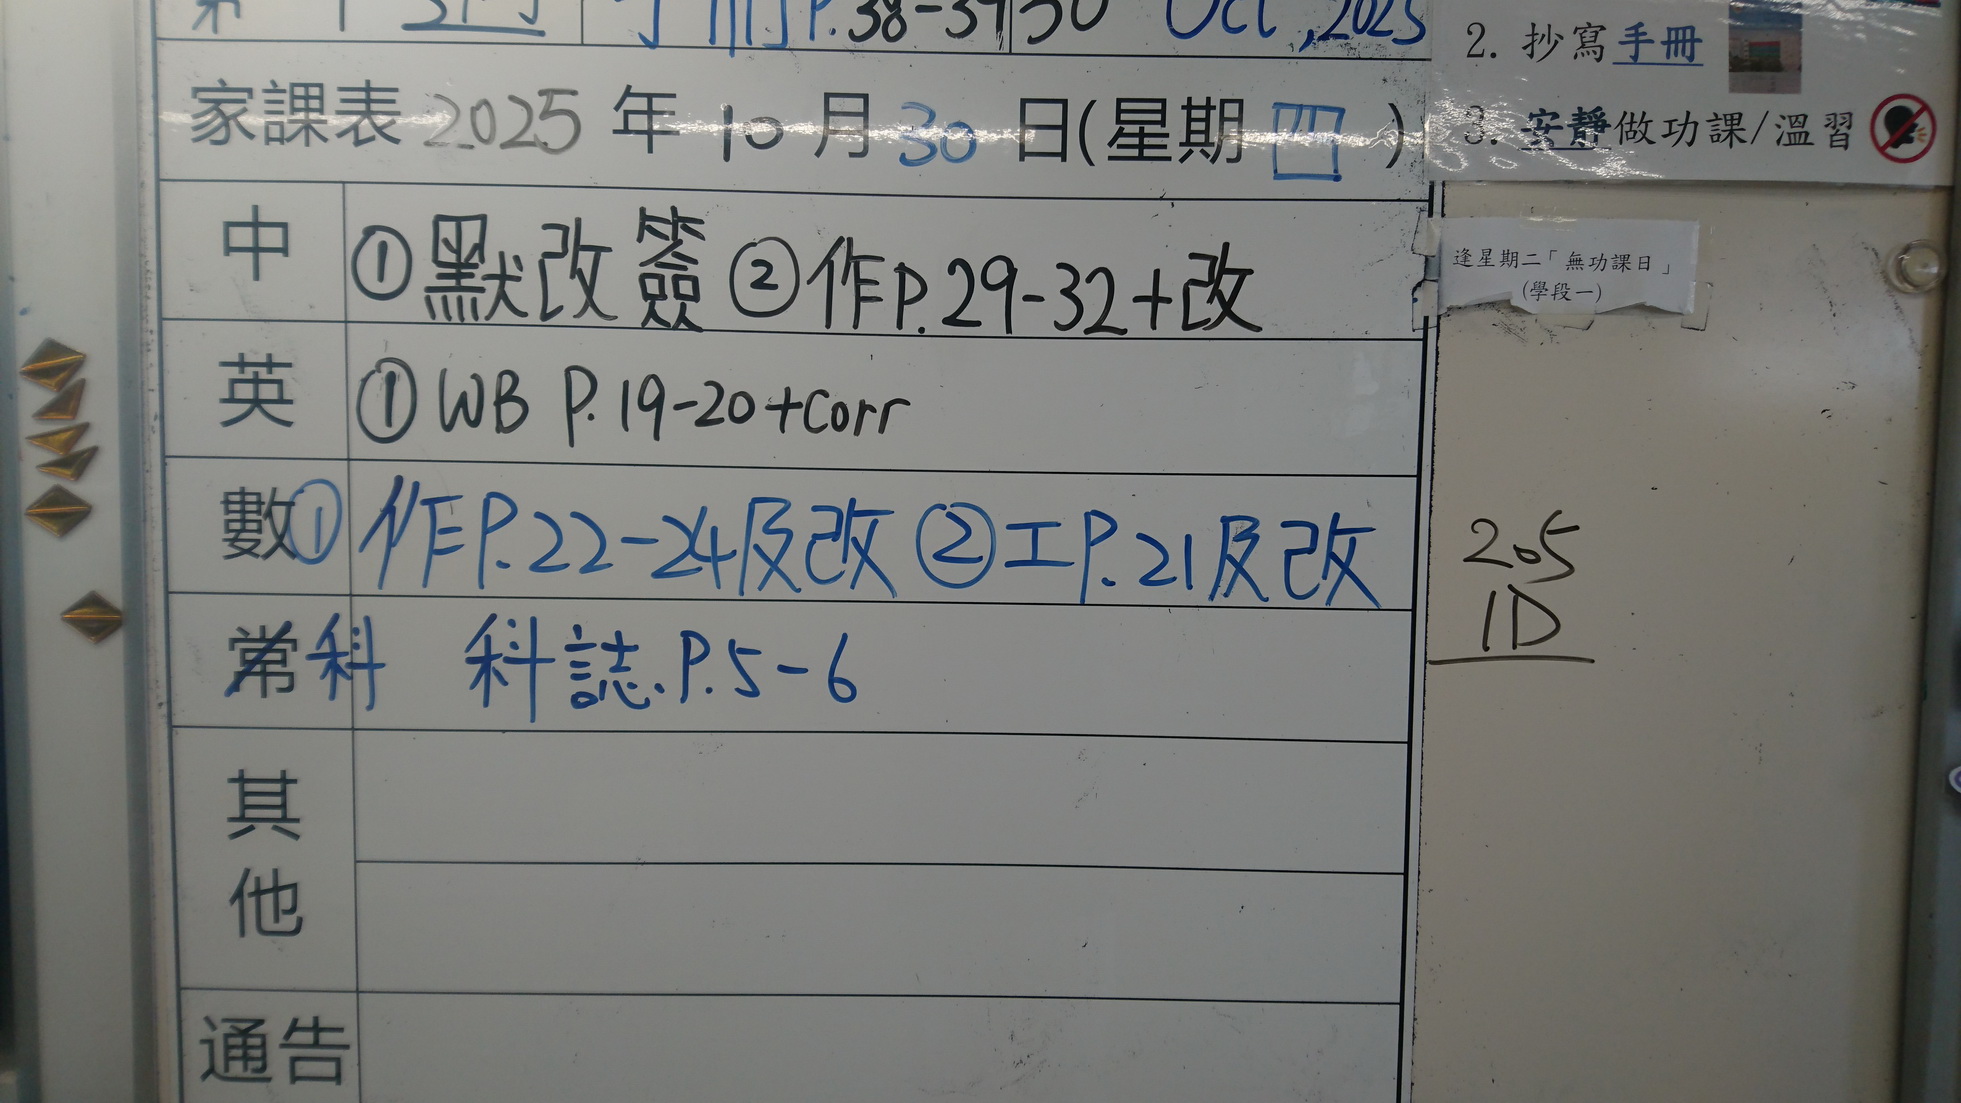 手冊P.38-39 30 Oct,2025
家課表 2025 年 10 月 30 日(星期 四 )
中 ①默改簽 ②作P.29-32+改
英 ①WB P.19-20+Corr
數 ①作P.22-24及改 ②工P.21及改
常科 科誌.P.5-6
其他
通告
2. 抄寫手冊
3. 安靜做功課/溫習
逢星期二「無功課日」
(學段一)
205
1D